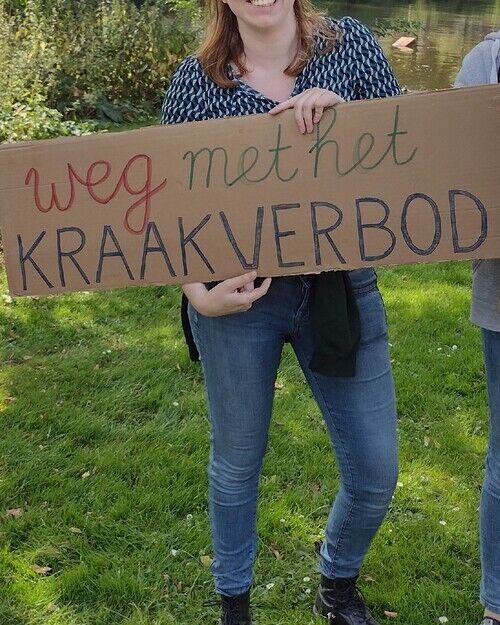 weg met het
KRAAKVERBOD